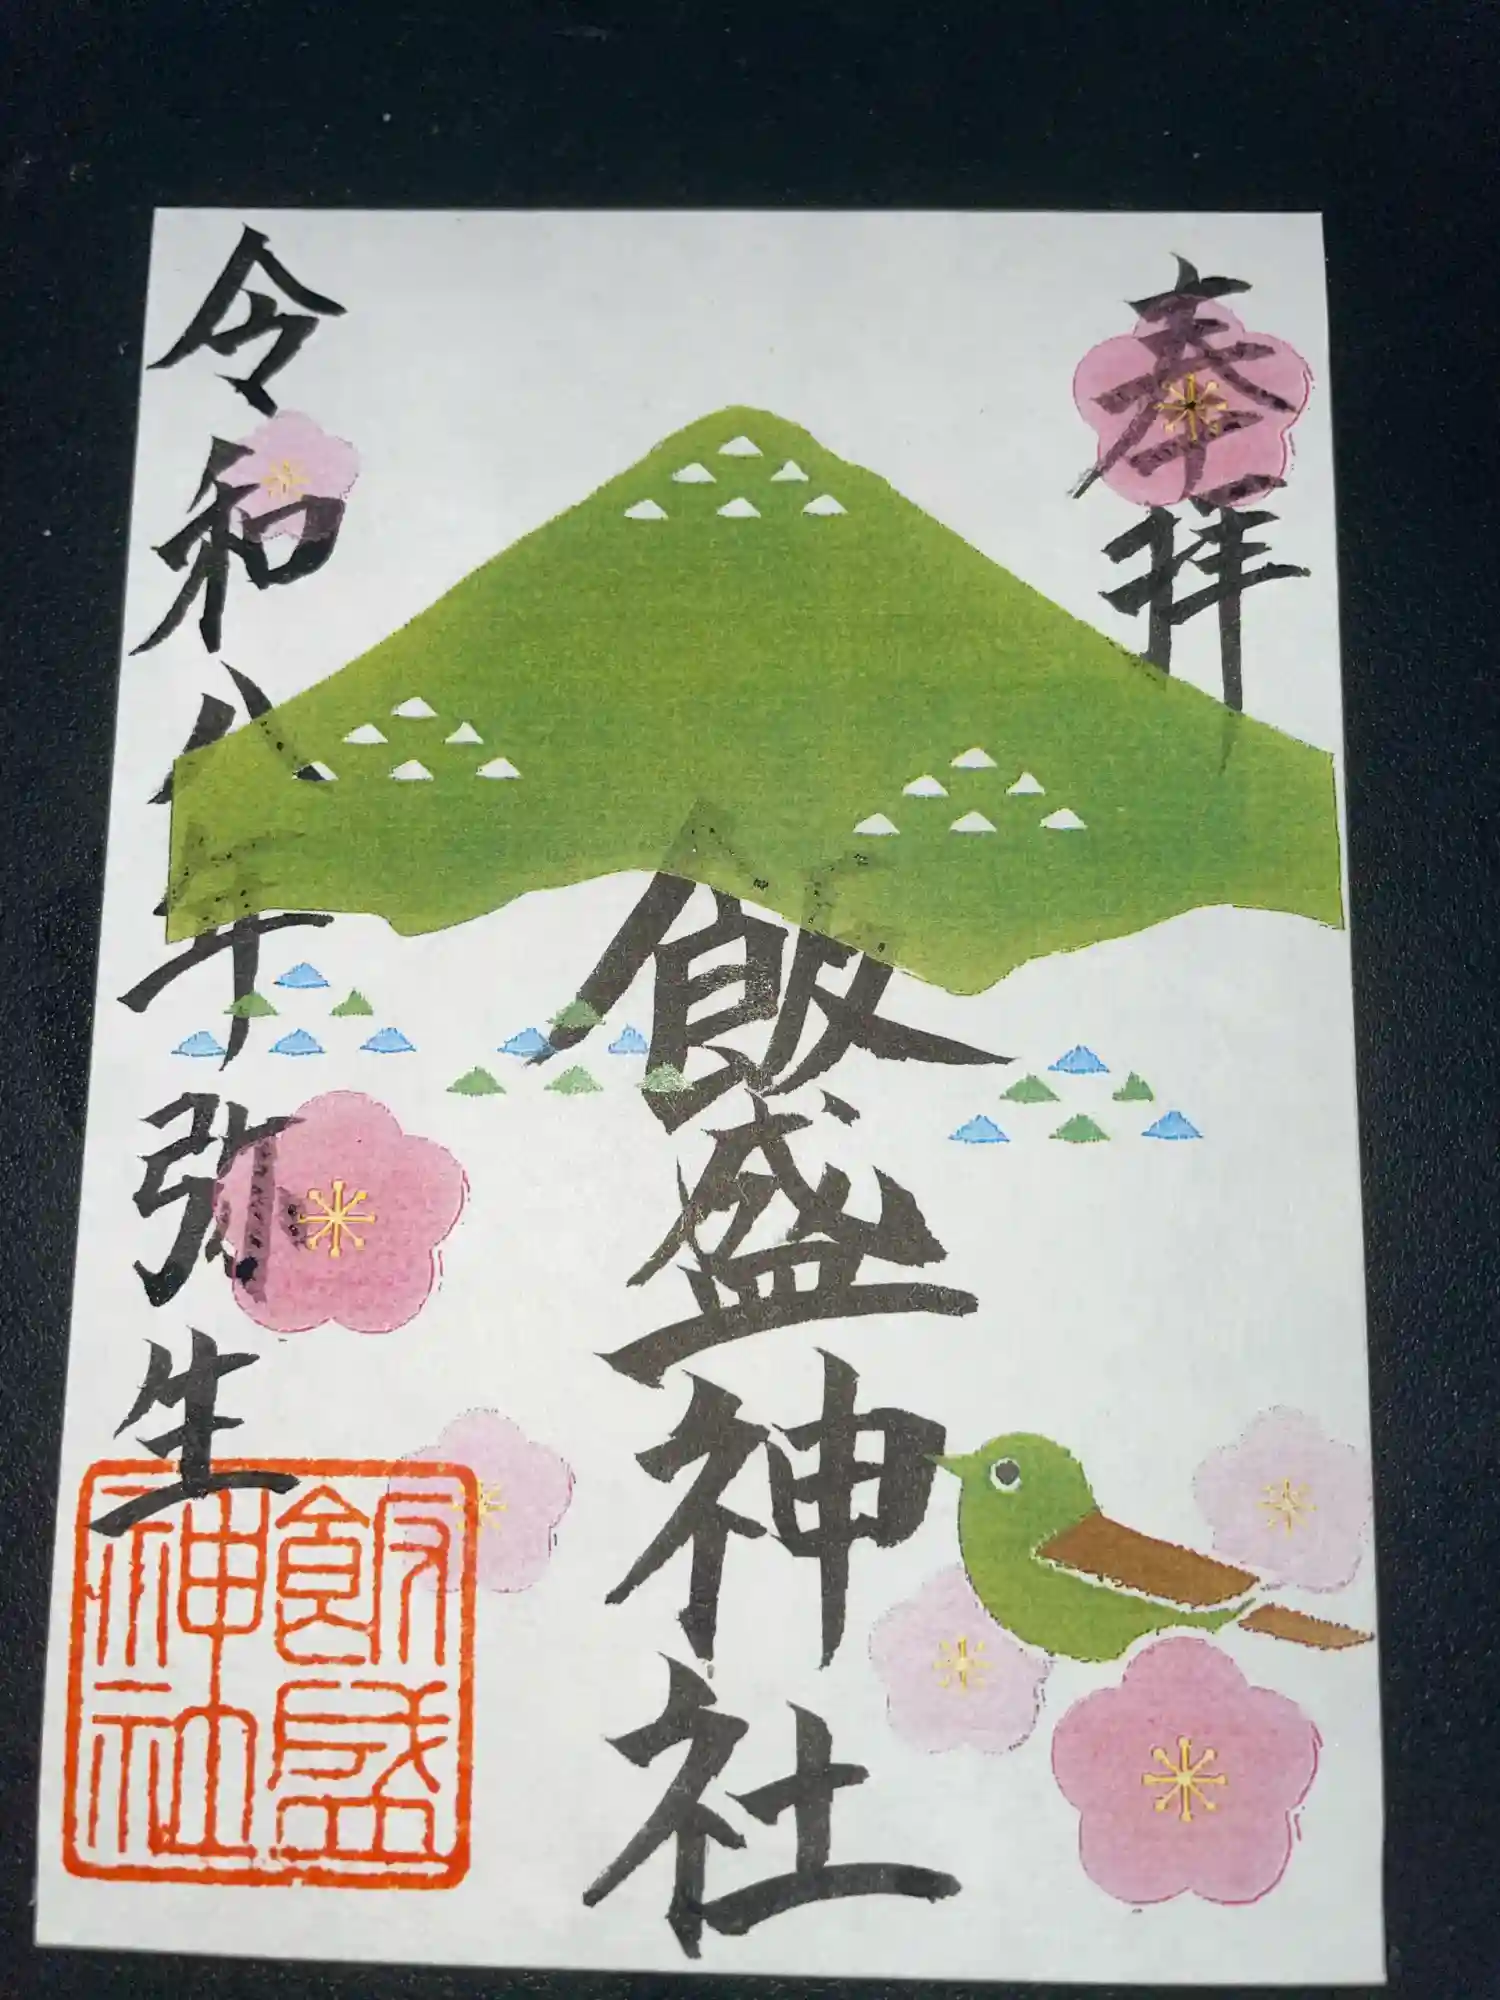 奉拝
飯盛神社
令和八年弥生
飯盛
神社